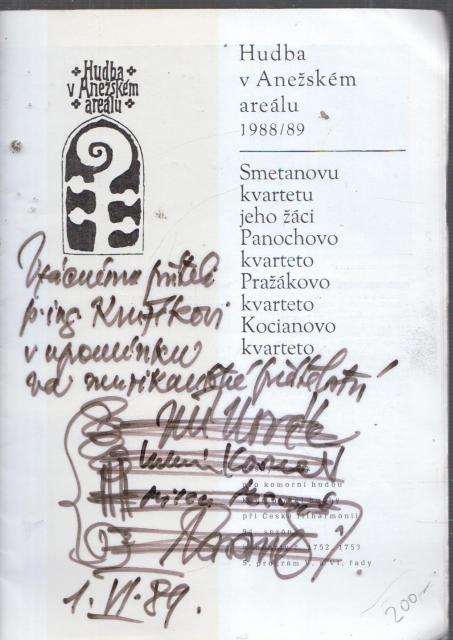 Hudba
v Anežském
areálu
Hudba
v Anežském
areálu
1988/89
Smetanovu
kvartetu
jeho žáci
Panochovo
kvarteto
Pražákovo
kvarteto
Kocianovo
kvarteto
Vzácnému příteli
p. ing.
v upomínku
na muzikantské přátelství
pro komorní hudbu
při České filharmonii
1752, 1753
5. program V. a VI. řady
1. VI. 89.
200,-